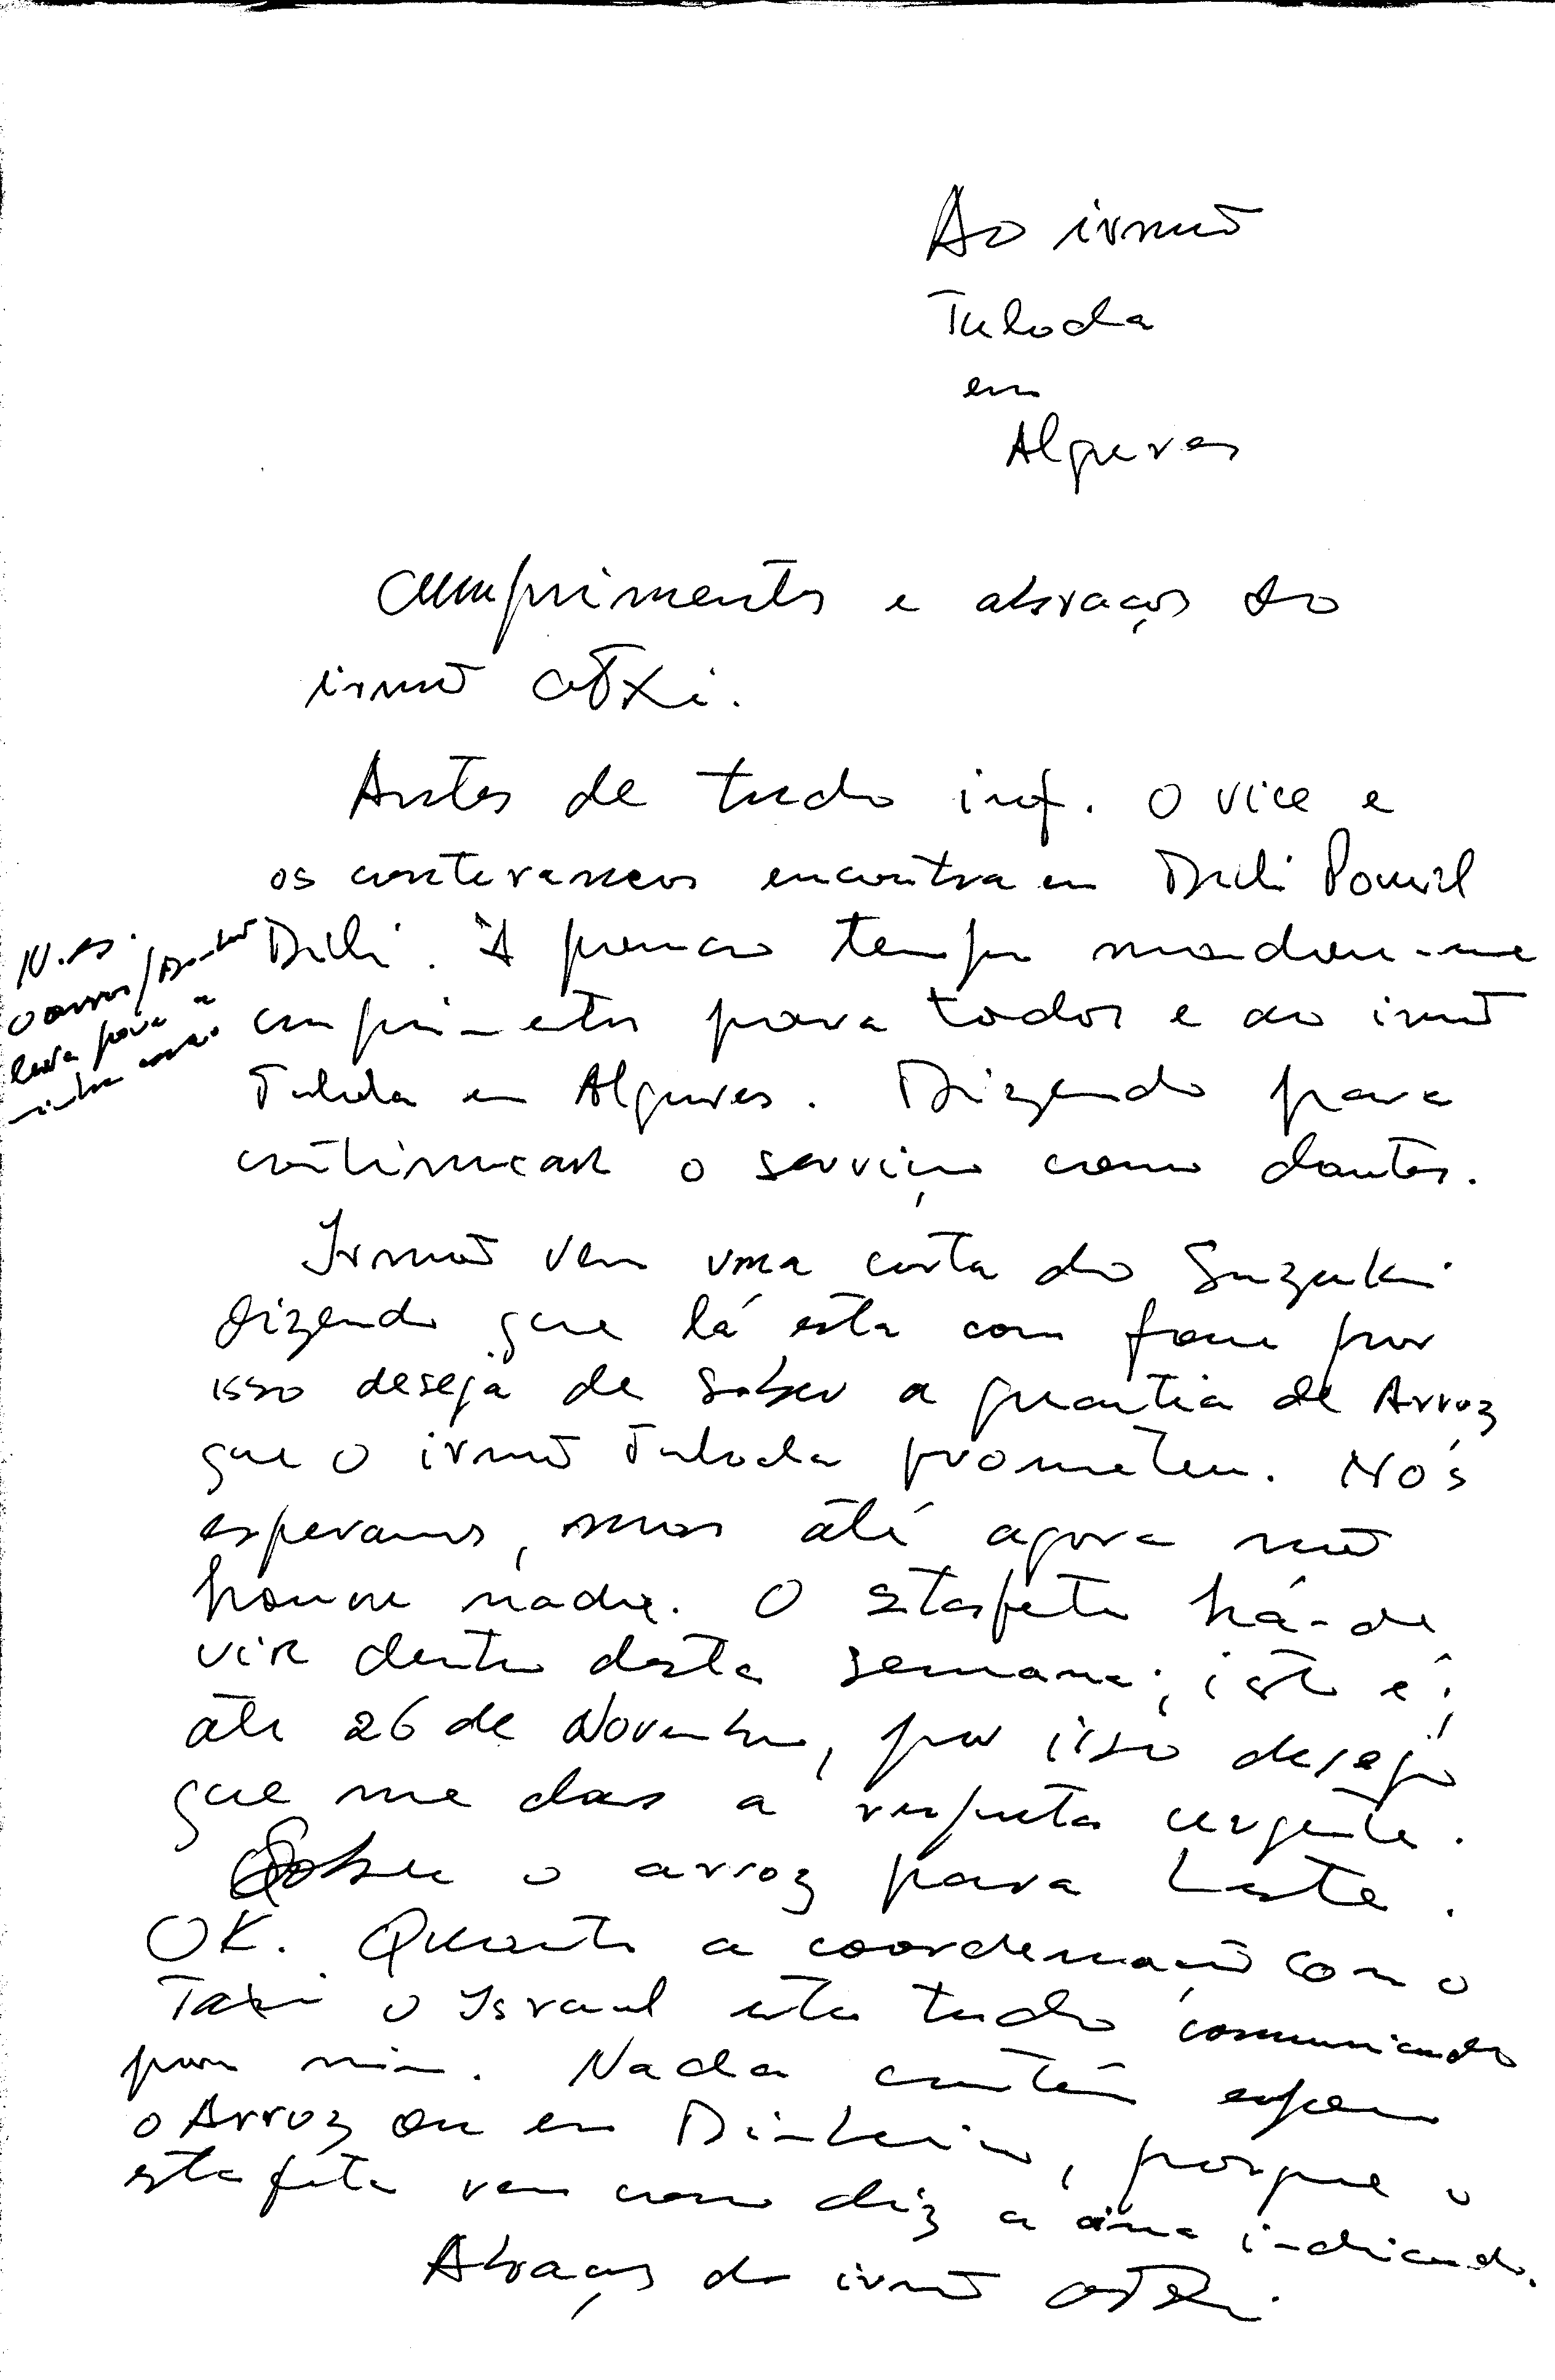 Ao irmão
Tuloda
em
Algures
Cumprimentos e abraços do
irmão
Antes de tudo inf. o vice e
os conterraneos encontra em Dili
Dili. A pouco tempo mandou-me
cumprimentos para todos e ao irmão
Tuloda em Algures. Dizendo para
continuar o serviço como dantes.
Irmão vem uma carta do Suzuki
dizendo que lá esta com fome por
isso deseja de saber a quantia de Arroz
que o irmão Tuloda prometeu. Nós
esperamos, mas até agora não
houve nada. O Estafeta há-de
vir dentro desta semana; isto é;
até 26 de Novembro, por isso desejo
que me das a resposta urgente.
Sobre o arroz para Leste.
OK. Quanto a coordenação com o
Taxi o Israel esta tudo comunicado
por mim. Nada contém espero
o Arroz ou em Dinheiro, porque o
estafeta vem como diz a indicando.
Abraços do irmão
N.B.
o arroz/Dinheiro
leva para a
minha